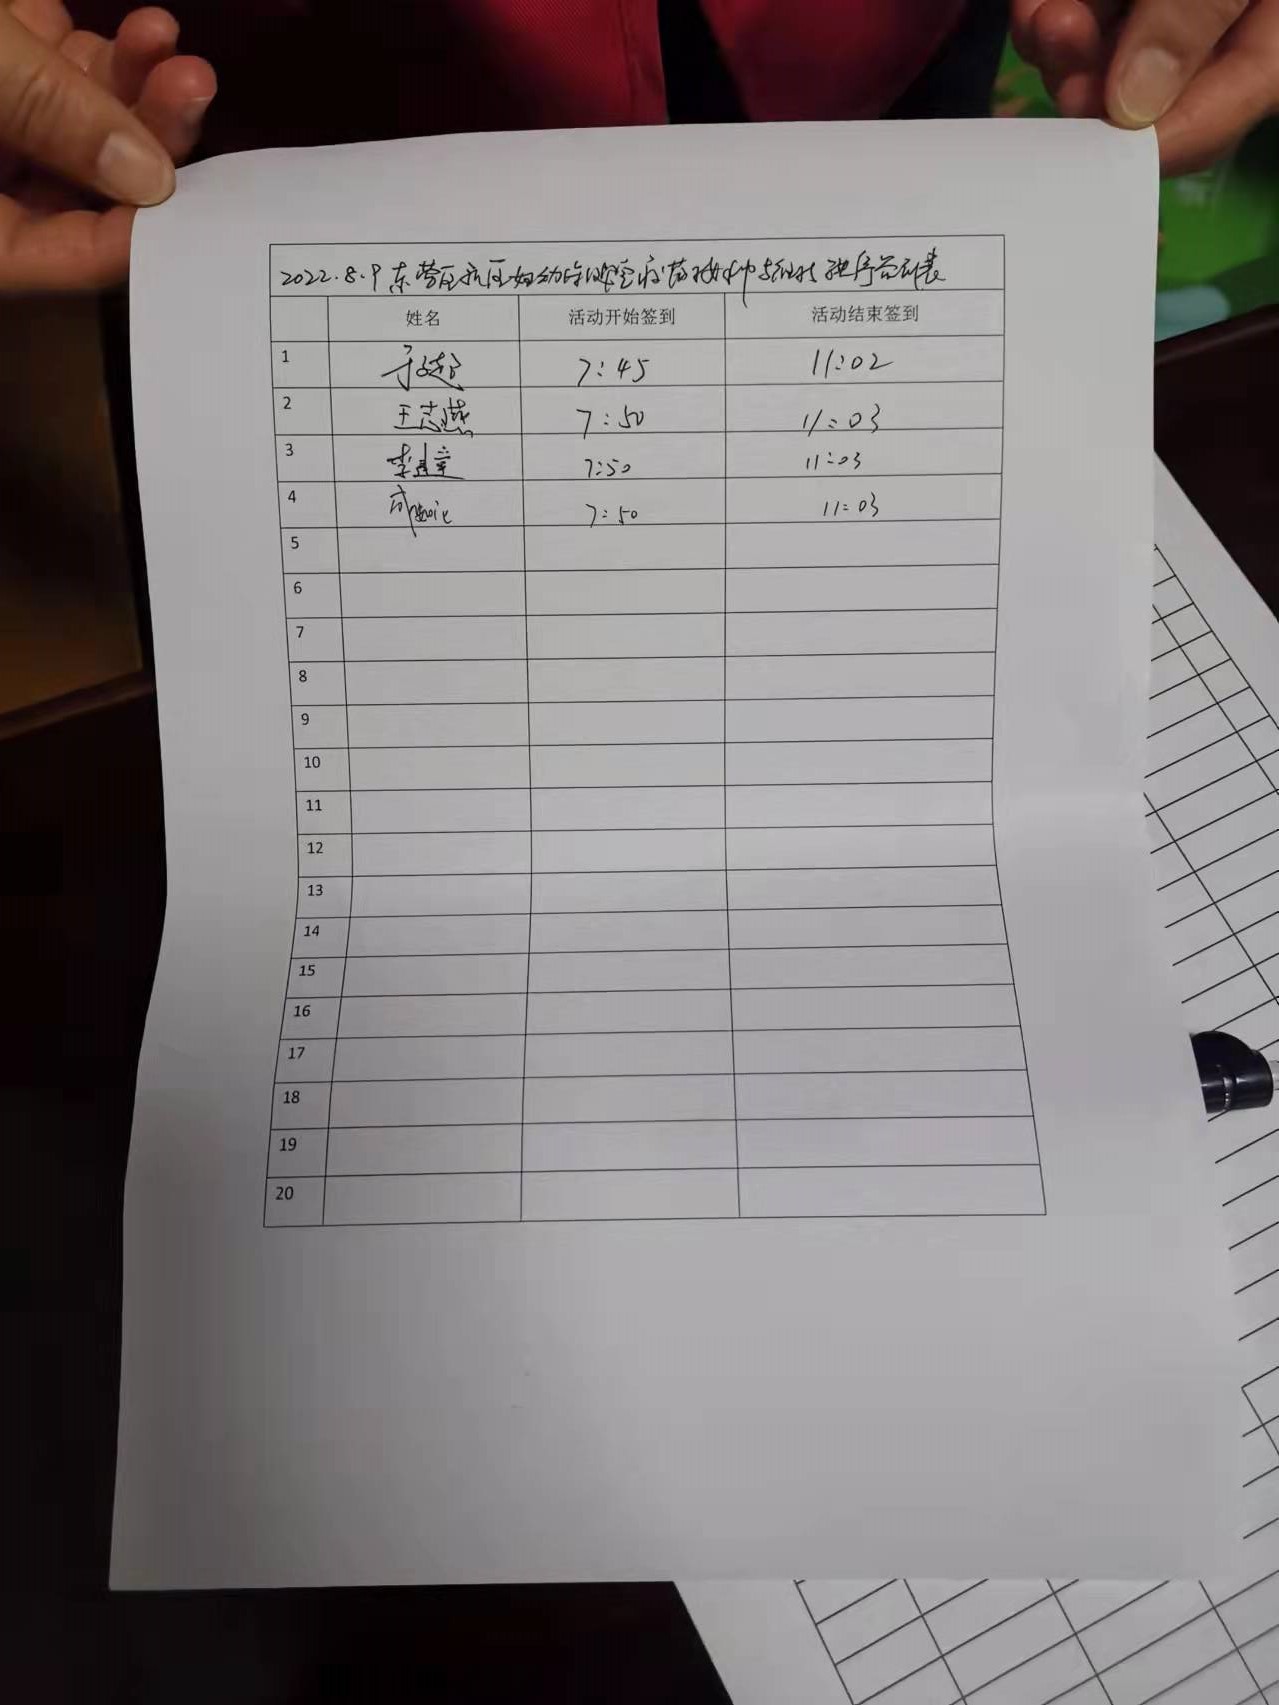 2022.8.9 东营区 妇幼 疫苗接种 秩序 表
姓名 活动开始签到 活动结束签到
1 于 7:45 11:02
2 王志燕 7:50 11:03
3 李 7:50 11:03
4 成 7:50 11:03
5
6
7
8
9
10
11
12
13
14
15
16
17
18
19
20